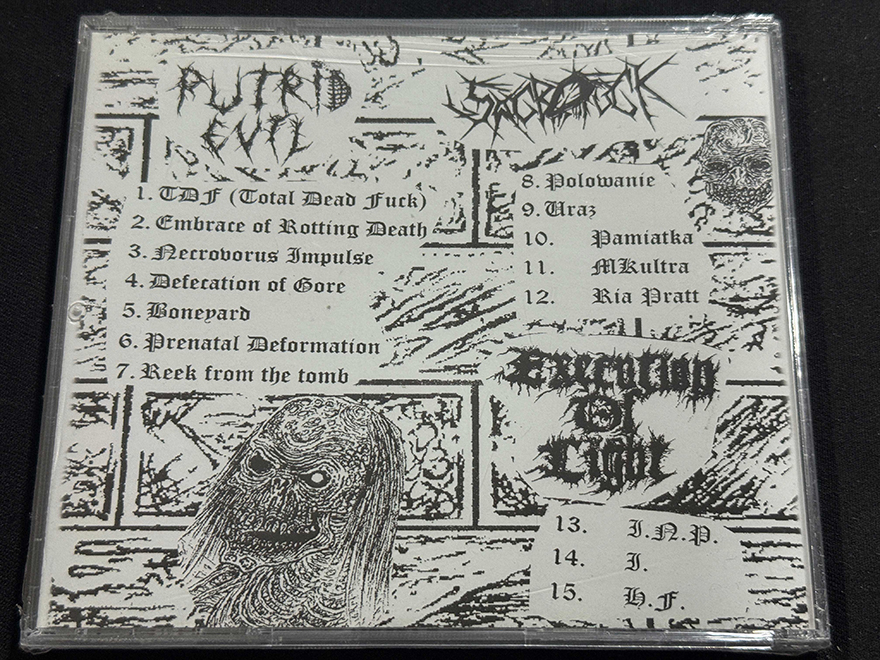 PUTRID
EVIL
1. TDF (Total Dead Fuck)
2. Embrace of Rotting Death
3. Necrovorus Impulse
4. Defecation of Gore
5. Boneyard
6. Prenatal Deformation
7. Reek from the tomb
8. Polowanie
9. Uraz
10. Pamiatka
11. MKultra
12. Ria Pratt
Execution
Of
Light
13. I.N.P.
14. I.
15. H.F.